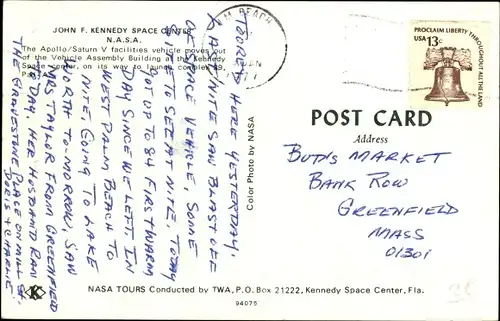 JOHN F. KENNEDY SPACE CENTER
N.A.S.A.
The Apollo/Saturn V facilities vehicle moves out
of the Vehicle Assembly Building at the Kennedy
Space center, on its way to launch complex 39,
Pad
TOURED HERE YESTERDAY,
LAST NITE SAW BLAST OFF
OF SPACE VEHICLE, SOME
SITE TO SEE AT NITE, TODAY
GOT UP TO 84 FIRST WARM
DAY SINCE WE LEFT, IN
WEST PALM BEACH TO
NITE, GOING TO LAKE
WORTH TO-MORROW, SAW
MRS TAYLOR FROM GREENFIELD
TO DAY, HER HUSBAND RAN
THE PLACE ON MILL ST.
DORIS + CHARLIE.
Color Photo by NASA
M BEACH
PROCLAIM LIBERTY THROUGHOUT ALL THE LAND
USA 13c
POST CARD
Address
MARKET
BANK ROW
GREENFIELD
MASS
01301
K
NASA TOURS Conducted by TWA, P.O. Box 21222, Kennedy Space Center, Fla.
94075